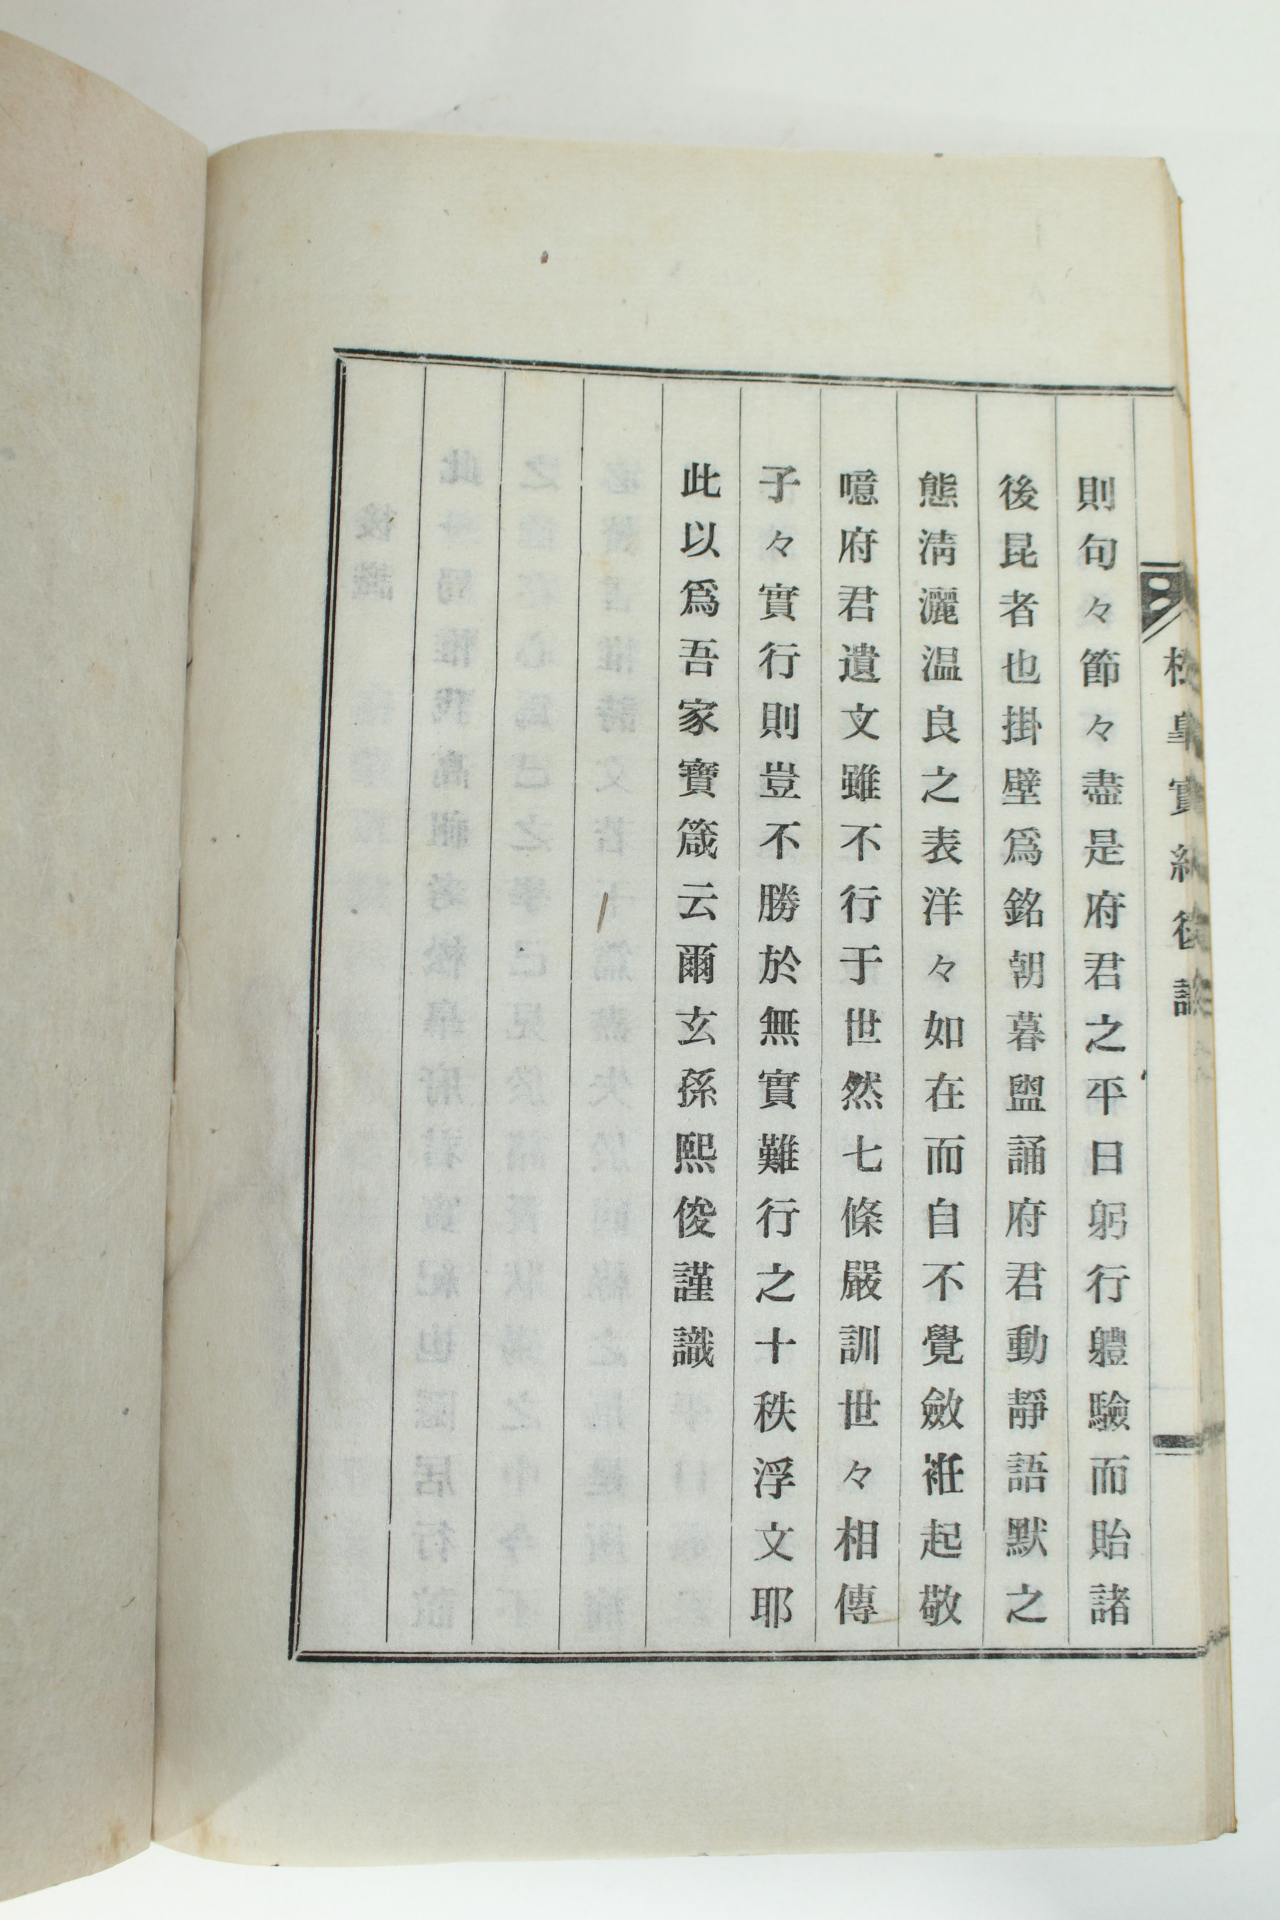 松皐實紀後識
則句々節々盡是府君之平日躬行軆驗而貽諸
後昆者也掛壁爲銘朝暮盥誦府君動靜語默之
態淸灑温良之表洋々如在而自不覺斂袵起敬
噫府君遺文雖不行于世然七條嚴訓世々相傳
子々實行則豈不勝於無實難行之十秩浮文耶
此以爲吾家寶箴云爾玄孫熙俊謹識